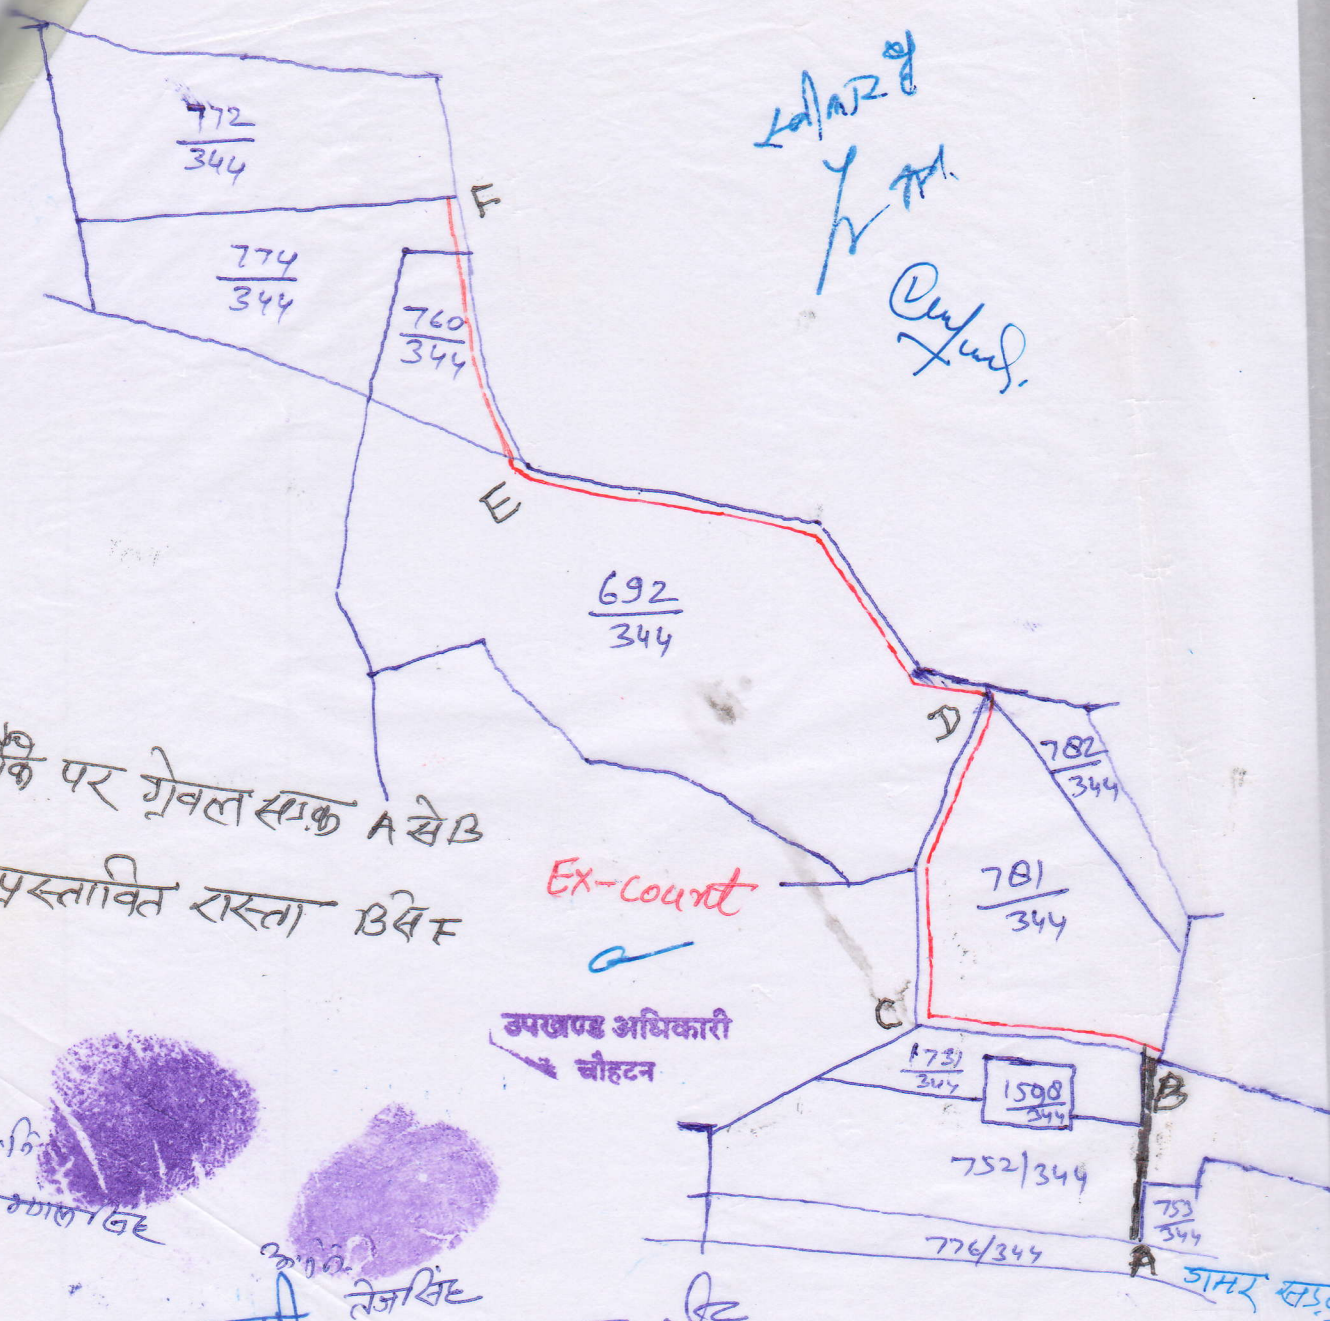 772
344
F
774
344
760
344
E
692
344
D
782
344
पर ग्रेवल सड़क A से B
प्रस्तावित रास्ता B से F
Ex-court
781
344
C
उपखण्ड अधिकारी
चौहटन
731
344
1598
344
B
752/344
753
344
776/344
A
डामर सड़क
तेजसिंह